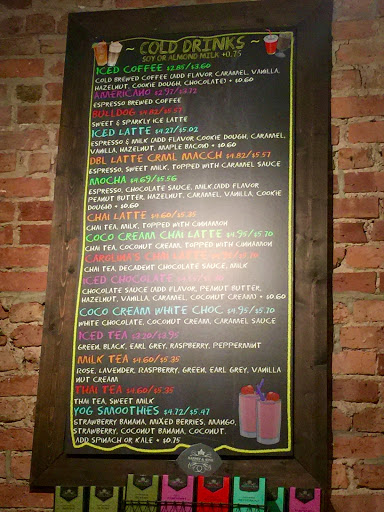 ~ COLD DRINKS ~
SOY OR ALMOND MILK +0.75
ICED COFFEE $2.85/$3.60
COLD BREWED COFFEE (ADD FLAVOR CARAMEL, VANILLA,
HAZELNUT, COOKIE DOUGH, CHOCOLATE) + $0.60
AMERICANO $2.97/$3.72
ESPRESSO BREWED COFFEE
BULLDOG $4.82/$5.57
SWEET & SPARKLY ICE LATTE
ICED LATTE $4.27/$5.02
ESPRESSO & MILK (ADD FLAVOR COOKIE DOUGH, CARAMEL,
VANILLA, HAZELNUT, MAPLE BACON) + $0.60
DBL LATTE CRML MACCH $4.82/$5.57
ESPRESSO, SWEET MILK, TOPPED WITH CARAMEL SAUCE
MOCHA $4.69/$5.56
ESPRESSO, CHOCOLATE SAUCE, MILK (ADD FLAVOR
PEANUT BUTTER, HAZELNUT, CARAMEL, VANILLA, COOKIE
DOUGH) + $0.60
CHAI LATTE $4.60/$5.35
CHAI TEA, MILK, TOPPED WITH CINNAMON
COCO CREAM CHAI LATTE $4.95/$5.70
CHAI TEA, COCONUT CREAM, TOPPED WITH CINNAMON
CAROLINA'S CHAI LATTE
CHAI TEA, DECADENT CHOCOLATE SAUCE, MILK
ICED CHOCOLATE
CHOCOLATE SAUCE (ADD FLAVOR, PEANUT BUTTER,
HAZELNUT, VANILLA, CARAMEL, COCONUT CREAM) + $0.60
COCO CREAM WHITE CHOC $4.95/$5.70
WHITE CHOCOLATE, COCONUT CREAM, CARAMEL SAUCE
ICED TEA $3.20/$3.95
GREEN, BLACK, EARL GREY, RASPBERRY, PEPPERMINT
MILK TEA $4.60/$5.35
ROSE, LAVENDER, RASPBERRY, GREEN, EARL GREY, VANILLA
NUT CREAM
THAI TEA $4.60/$5.35
THAI TEA, SWEET MILK
YOG SMOOTHIES $4.72/$5.47
STRAWBERRY BANANA, MIXED BERRIES, MANGO,
STRAWBERRY, COCONUT BANANA, COCONUT.
ADD SPINACH OR KALE + $0.75